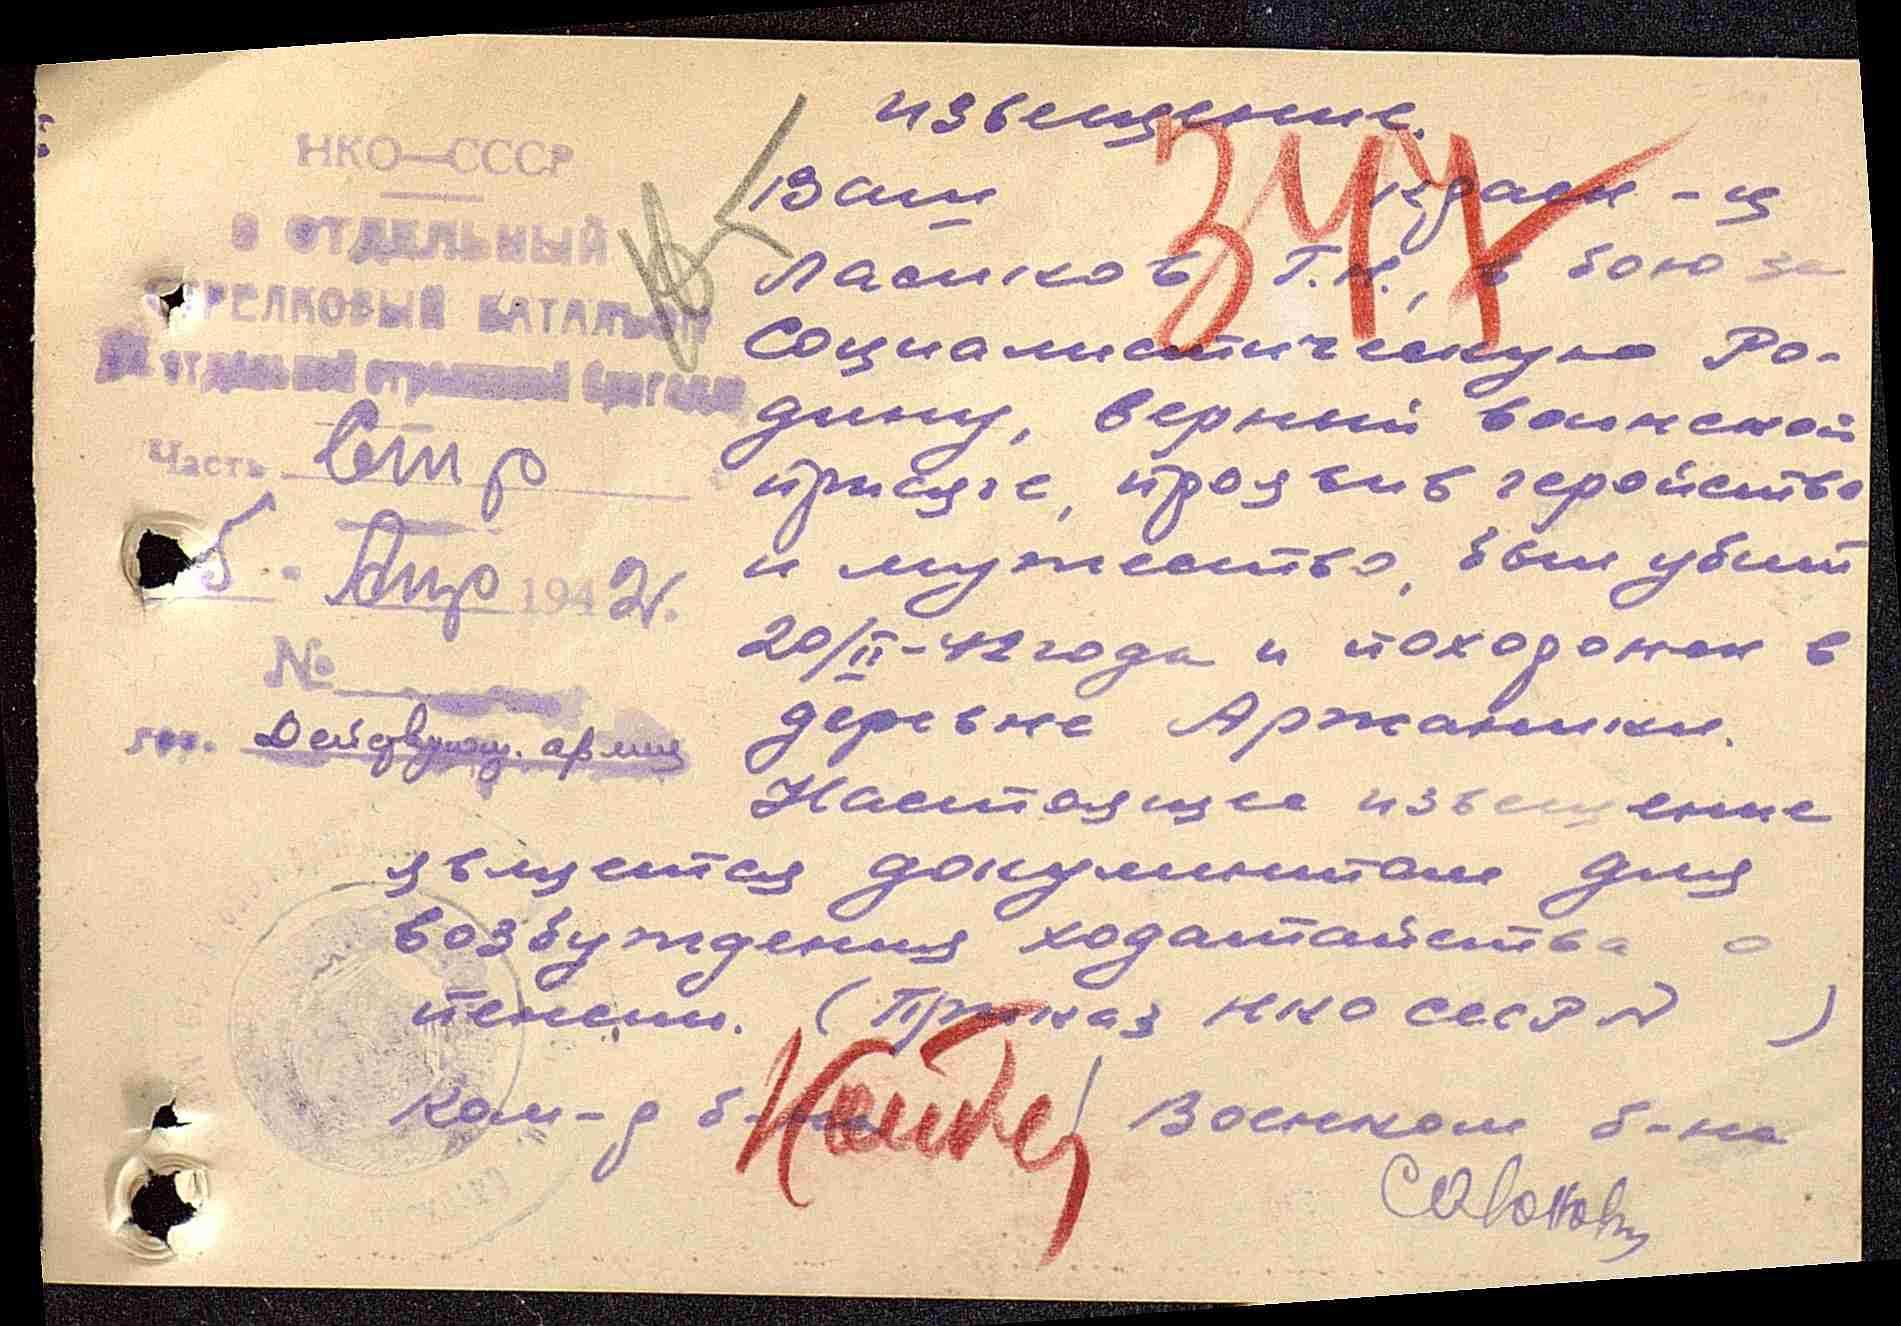 НКО—СССР
ОТДЕЛЬНЫЙ
СТРЕЛКОВЫЙ БАТАЛЬОН
отдельной стрелковой бригады
Часть Стр
5 . Апр 1942г.
№
Действующ. армия
извещение.
Ваш красн-ц
Ласиков Г.Н., в бою за
Социалистическую Ро-
дину, верный воинской
присяге, проявив геройство
и мужество, был убит
20/II-42 года и похоронен в
деревне Аржаники.
Настоящее извещение
является документом для
возбуждения ходатайства о
пенсии. (Приказ НКО СССР N )
Ком-р б-на Военком б-на
347